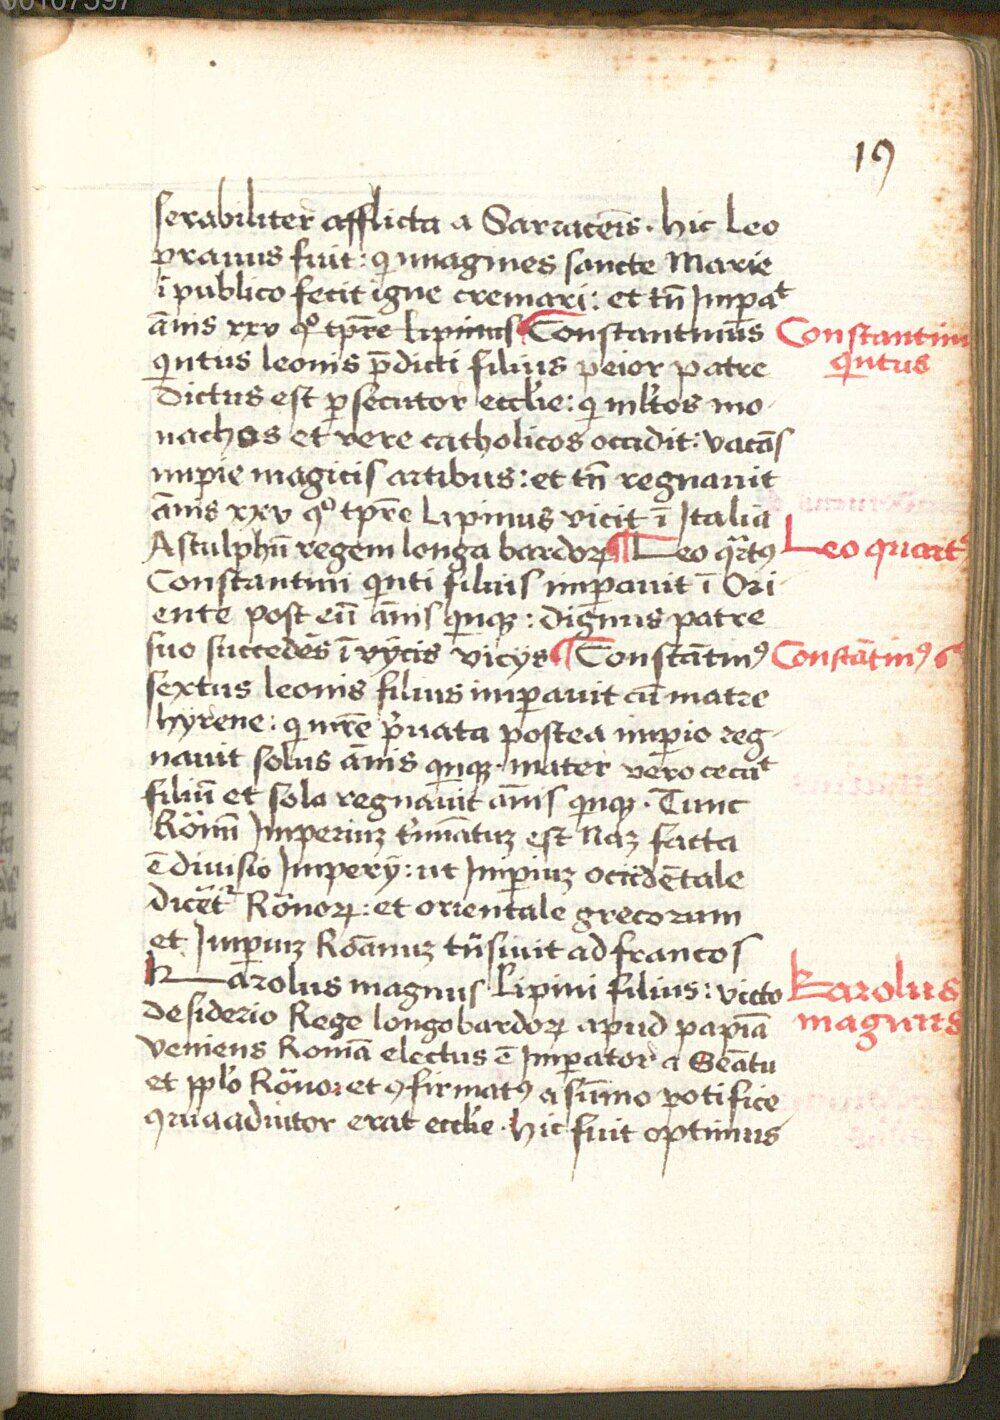 19
serabiliter afflicta a Sarracenis. hic Leo
prauus fuit: qi ymagines sancte Marie
ī publico fecit igne cremari: et tn̄ Impat
ānis xxv qo tp̄re Lipinus Constantinus
qintus leonis p̄dicti filius peior patre
Dictus est psecutor eccłie: qi młtos mo-
nachos et vere catholicos occidit: vacās
impie magicis artibus: et tn̄ regnauit
ānis xxv qo tp̄re Lipinus vicit ī Italia
Astulphū regem longa bardoꝝ ¶ Leo qartꝰ
Constantini qinti filius impauit ī Ori-
ente post eū ānis qinqꝫ: dignus patre
suo succedēs ī vycis vicijs ¶ Constātinꝰ
sextus leonis filius impauit cū matre
hyrene: qi mr̄e pivata postea impio reg-
nauit solus ānis qinqꝫ. mater vero cecat
filiū et sola regnauit ānis qinqꝫ. Tunc
Romā Imperiuz timātuz est Naz facta
ē diuisio Imperij: ut Impiuz occidētale
dicēt Rōnoꝝ: et orientale grecorum
et Impiuz Roānuz tn̄siuit ad francos
Karolus magnus Lipini filius: victo
desiderio Rege longobardoꝝ apud papiā
veniens Romā electus ē Impator a Seātu
et pplo Rōnoꝝ et ꝯfirmatꝰ a sūmo pōtifice
qui a adiutor erat eccłie. hic fuit optimus
Constantin
qintus
Leo quart
Constātinꝰ 6
Karolus
magnus